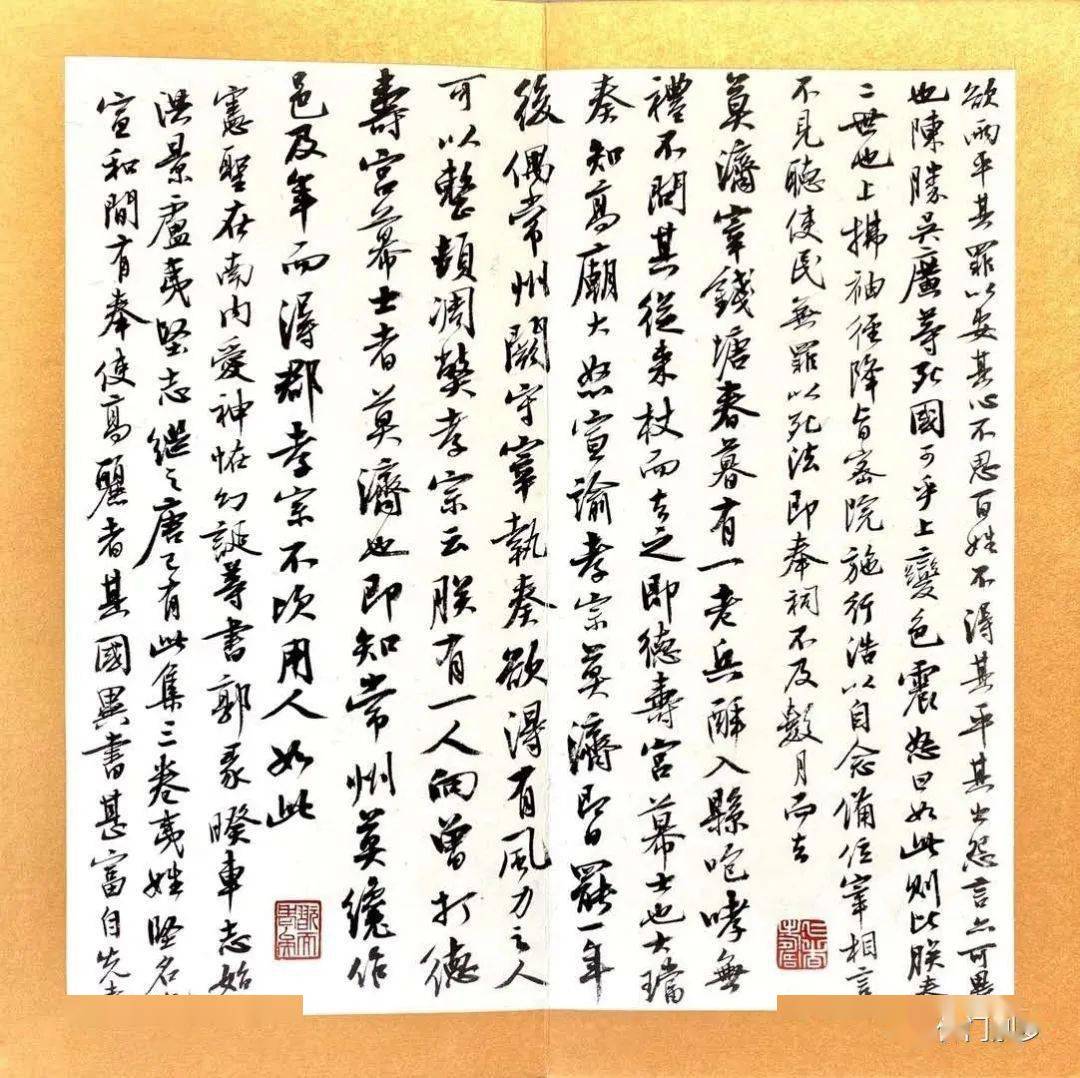 欲兩平其罪以安其心不思百姓不得其平其出怨言亦可畏
也陳勝吳廣等死國可乎上變色震怒曰如此則比朕秦
二世也上拂袖徑降旨密院施行浩以自念備位宰相言
不見聽使民無罪以死法即奉祠不及數月而去
莫濟宰錢塘春暮有一老兵醉入縣咆哮無
禮不問其從来杖而去之即德壽宮幕士也大璫
奏知高廟大怒宣諭孝宗莫濟即日罷一年
後偶常州闕守宰執奏欲得有風力之人
可以整頓凋獘孝宗云朕有一人向曽打德
壽宮幕士者莫濟也即知常州莫纔作
邑及年而得郡孝宗不次用人如此
憲聖在南内愛神怪幻誕等書郭彖睽車志始
洪景盧夷堅志繼之唐已有此集三卷夷姓堅名
宣和間有奉使高麗者其國異書甚富自先